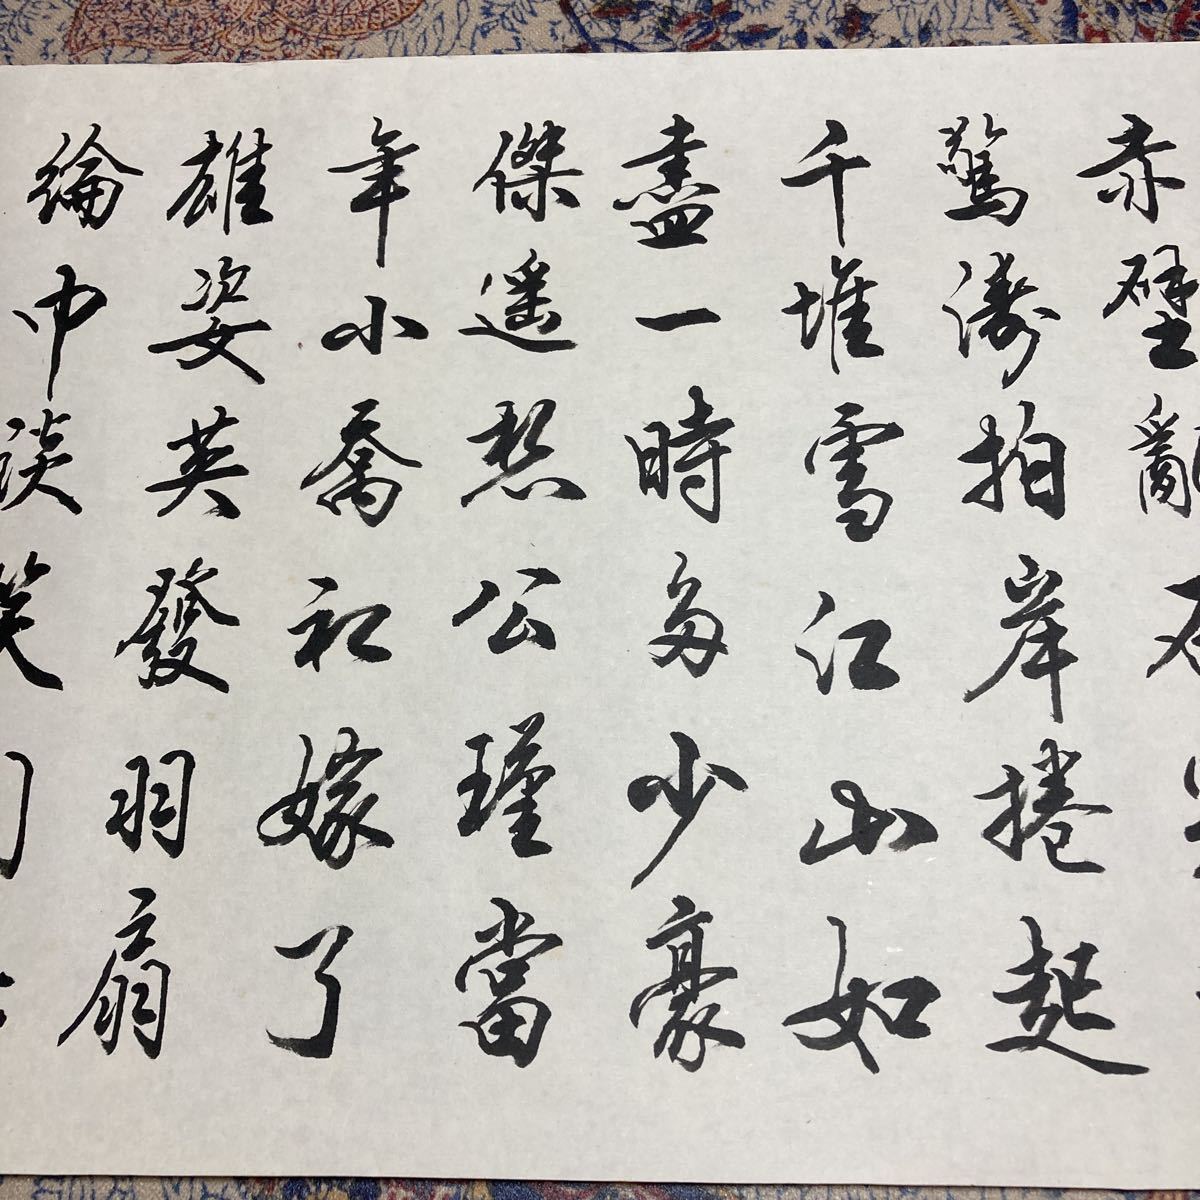 赤壁亂石
驚濤拍岸捲起
千堆雪江山如
盡一時多少豪
傑遙想公瑾當
年小喬初嫁了
雄姿英發羽扇
綸巾談笑